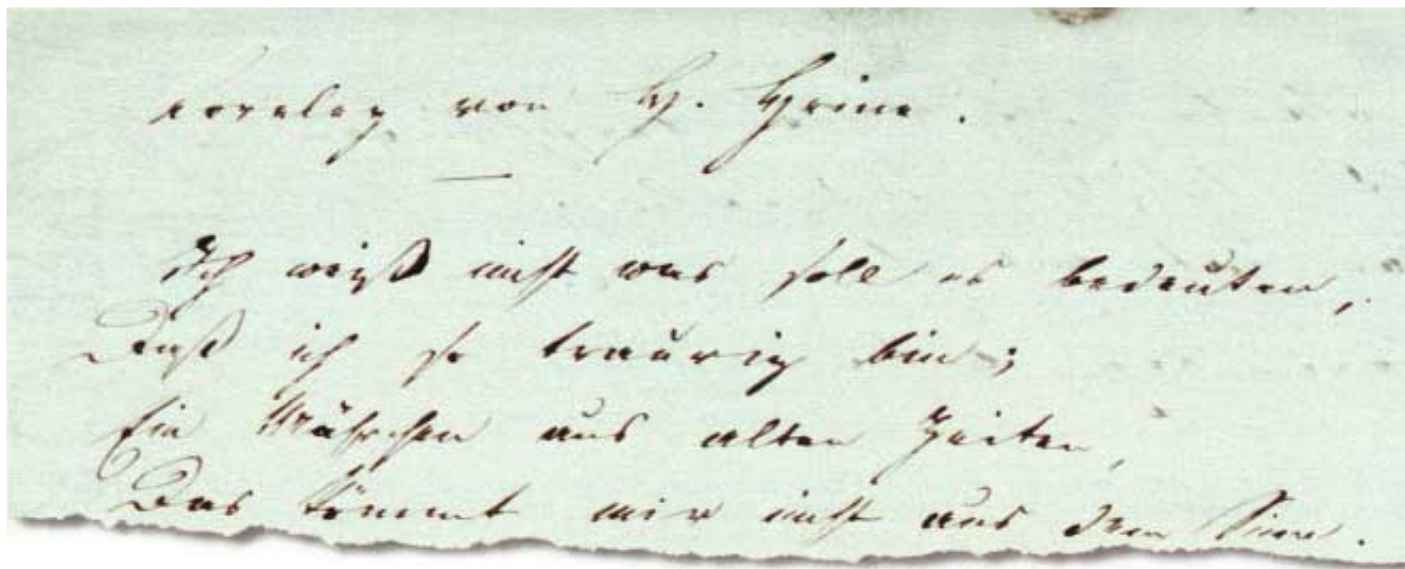 Loreley von H. Heine.
Ich weiß nicht was soll es bedeuten,
Daß ich so traurig bin;
Ein Mährchen aus alten Zeiten,
Das kömmt mir nicht aus dem Sinn.